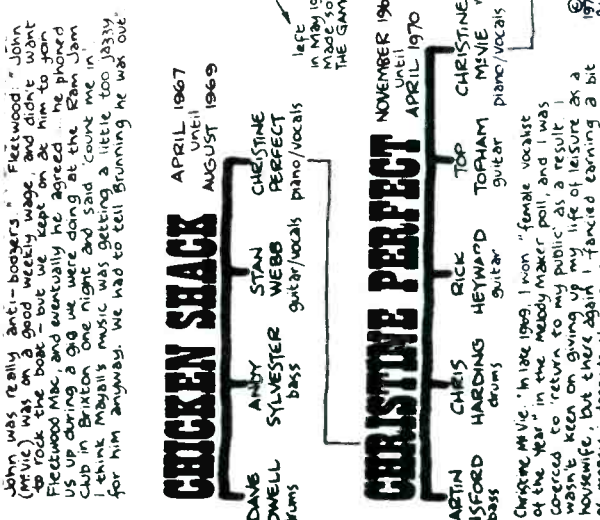 John was really anti-boozers." Fleetwood: "John
(McVie) was on a good weekly wage, and didn't want
to rock the boat - but we kept on at him to join
Fleetwood Mac, and eventually he agreed... he phoned
us up during a gig we were doing at the Ram Jam
Club in Brixton one night and said 'count me in
I think Mayall's music was getting a little too jazzy
for him anyway. We had to tell Brunning he was out"
CHICKEN SHACK
APRIL 1967
until
AUGUST 1969
DAVE
DWELL
rums
ANDY
SYLVESTER
bass
STAN
WEBB
guitar/vocals
CHRISTINE
PERFECT
piano/vocals
left
in May 19
Made so
THE GAM
CHRISTINE PERFECT
NOVEMBER 196
until
APRIL 1970
ARTIN
SFORD
bass
CHRIS
HARDING
drums
RICK
HEYWARD
guitar
TOP
TOPHAM
guitar
CHRISTINE
McVIE
piano/vocals
Christine McVie: "In late 1969, I won "female vocalist
of the year" in the Melody Maker poll, and I was
coerced to 'return to my public' as a result. I
wasn't keen on giving up my life of leisure as a
housewife, but there again I fancied earning a bit
©
197